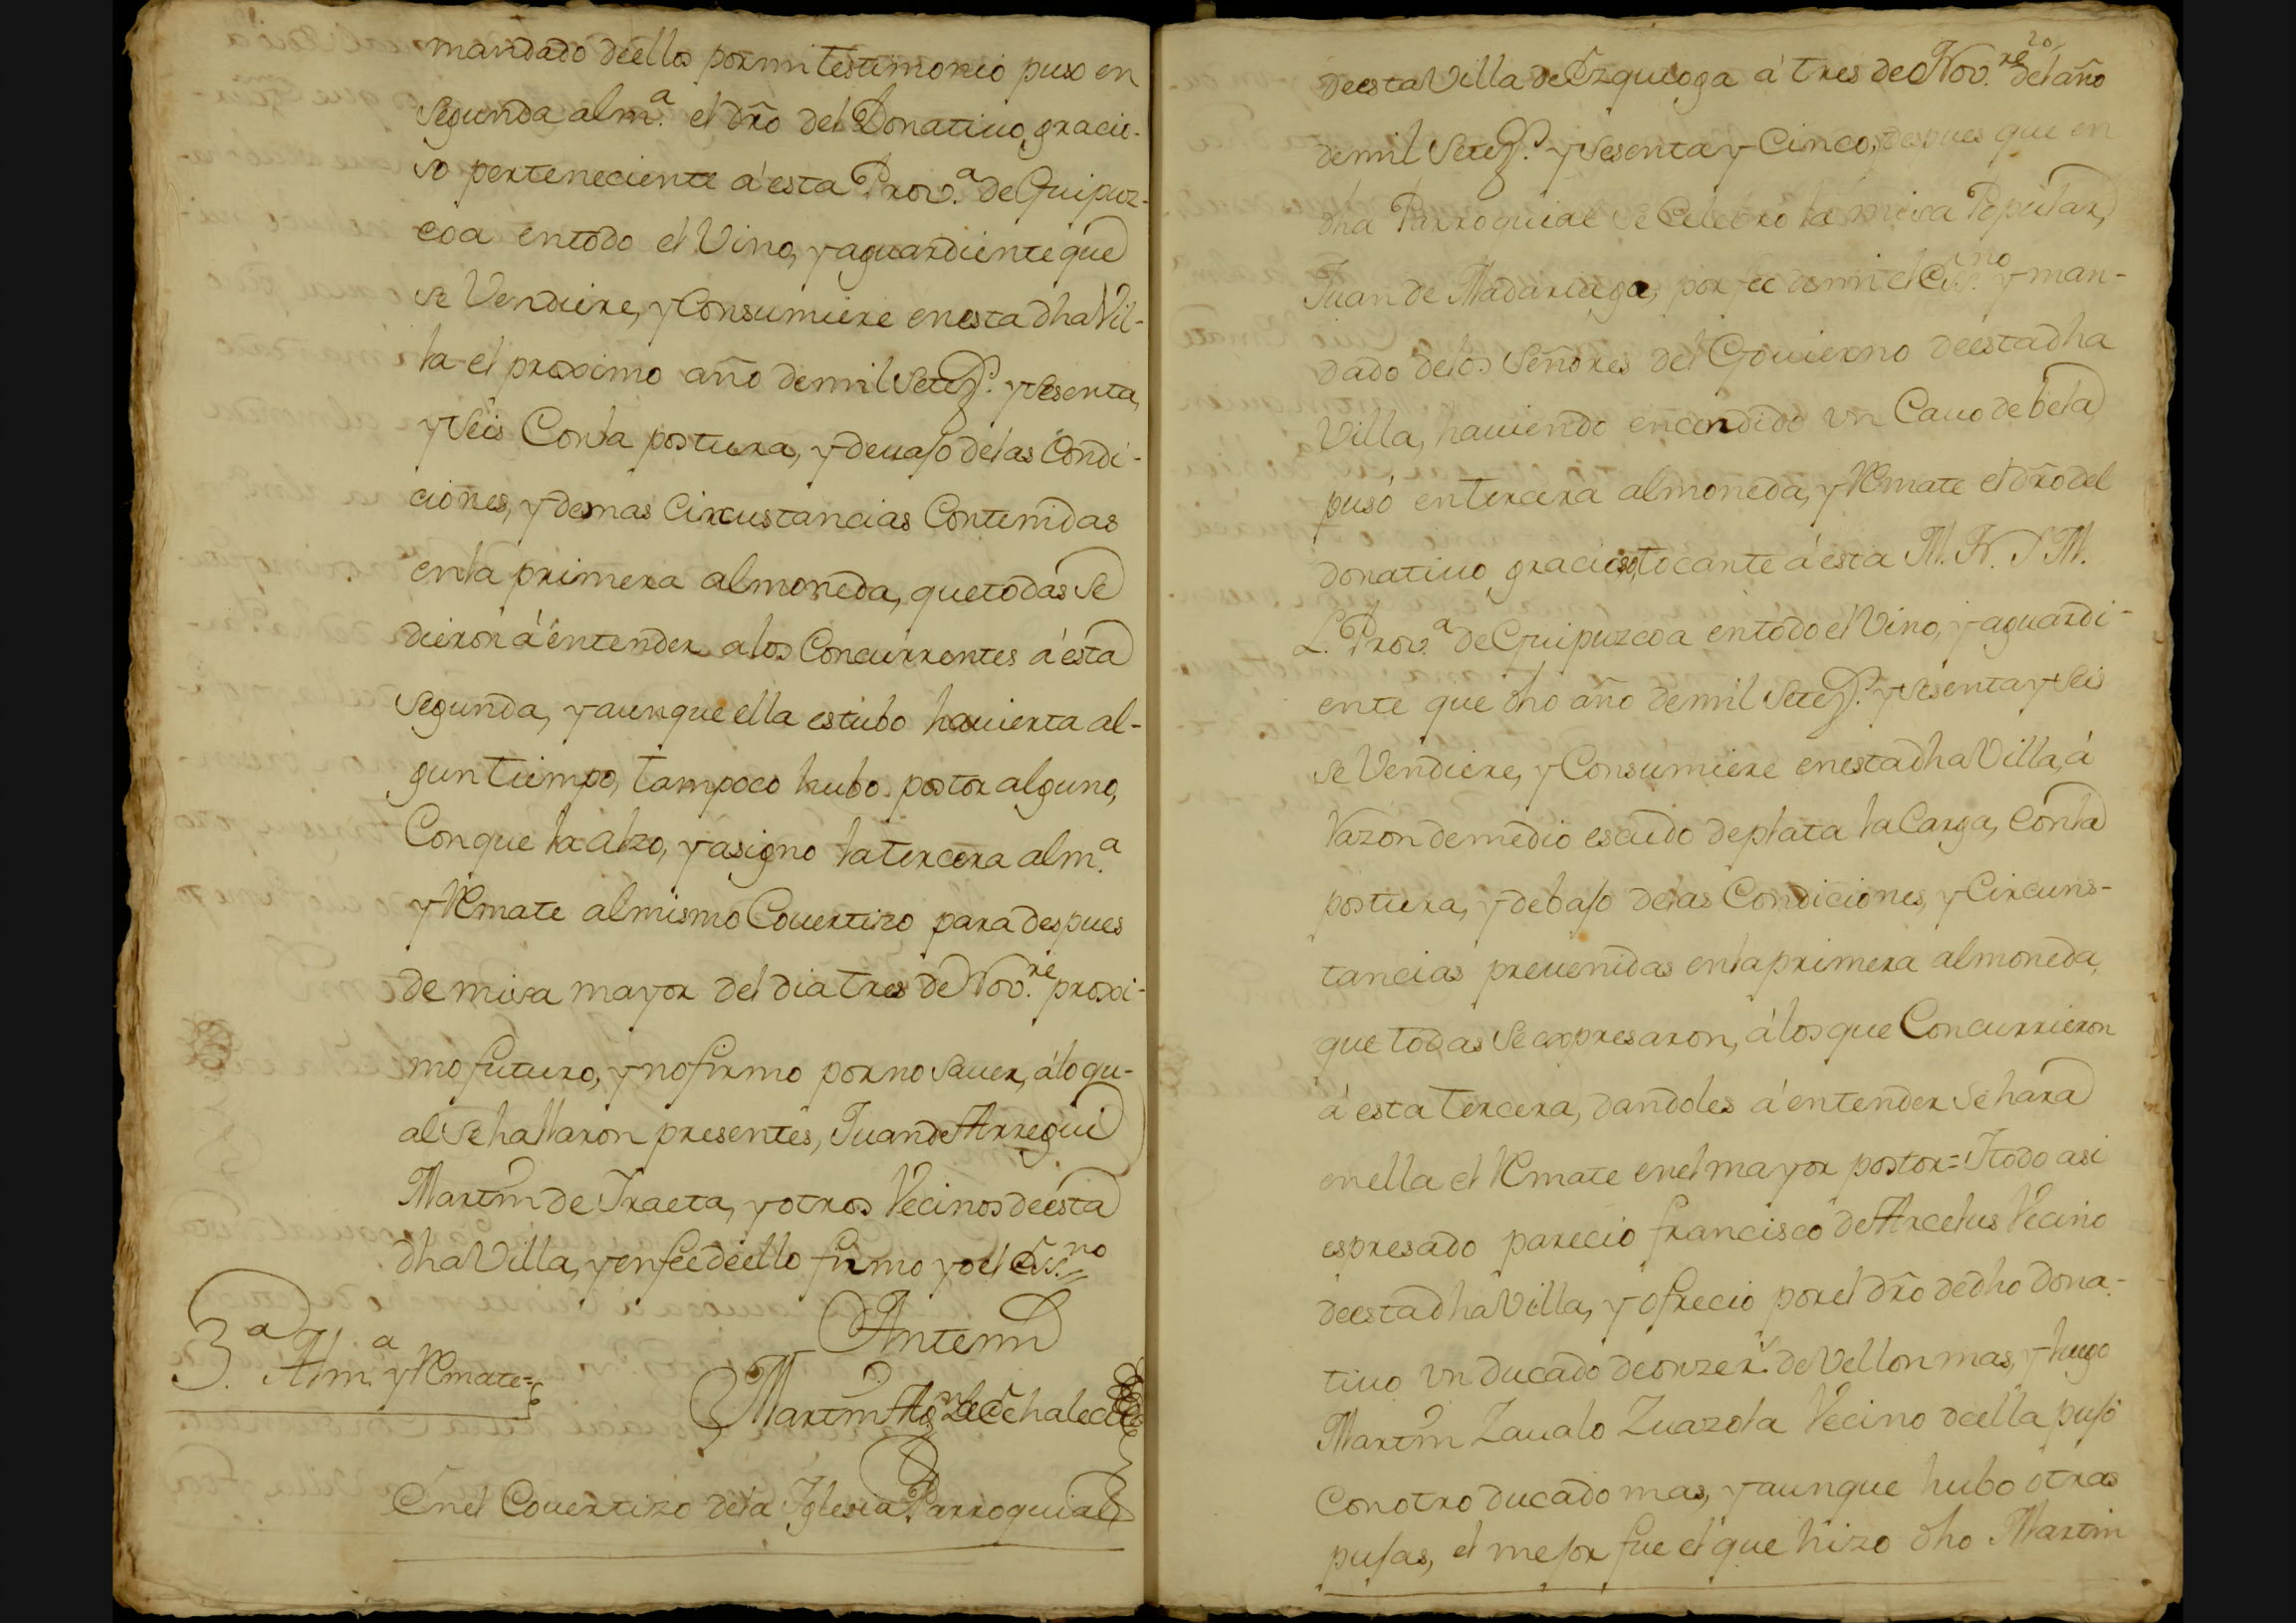 mandado deellos por mi testimonio puso en
segunda alm.ª el dr̃o del Donatiuo gracio-
so perteneciente á esta Prov.ª de Guipuz-
coa entodo el Vino, y aguardiente que
se Vendiere, y Consumiere en esta dha Vil-
la el proximo año de mil setez.s y sesenta,
y seis Con la postura, y deuajo delas Condi-
ciones, y demas Circustancias Contenidas
enla primera almoneda, que todas se
dieron á entender alos Concurrentes á esta
segunda, y aunque ella estubo hauierta al-
gun tiempo, tampoco hubo postor alguno,
Conque la alzo, y asigno la tercera alm.ª
y Remate al mismo Couertizo para despues
de misa mayor del dia tres de Nov.re proxi-
mo futuro, y no firmo por no sauer, á lo qu-
al se hallaron presentes, Juan de Arregui
Martin de Iraeta, y otros Vecinos de esta
dha Villa, y enfee deello firmo yo el Ess.no
Antemi
Martin Ag.n de Echalecu
3.ª Alm.ª y Remate=
Enel Couertizo dela Iglesia Parroquial
20
deesta Villa de Ezquioga á tres de Nov.re del año
de mil setez.s y sesenta y Cinco, despues que en
dha Parroquial se Celebro la misa Popular,
Juan de Madariaga, por fee de mi el Ess.no y man-
dado delos Señores del Gouierno de esta dha
Villa, hauiendo encendido vn Cauo de bela
pusó en tercera almoneda, y Remate el dr̃o del
donatiuo gracioso, tocante á esta M. N. I M.
L. Prov.ª de Guipuzcoa entodo el Vino, y aguardi-
ente que dho año de mil setez.s y sesenta y seis
se Vendiere, y Consumiere en esta dha Villa, á
Razon de medio escudo de plata la Carga, Con la
postura, y debajo delas Condiciones, y Circuns-
tancias preuenidas enla primera almoneda,
que todas se expresaron, á los que Concurrieron
á esta tercera, dandoles á entender se hara
en ella el Remate en el mayor postor= I todo asi
espresado parecio francisco de Arcelus Vecino
deesta dha Villa, y ofrecio por el dr̃o de dho Dona-
tiuo vn ducado de onze r.s de Vellon mas, y luego
Martin Zaualo Zuazola Vecino deella pujó
Con otro ducado mas, y aunque hubo otras
pujas, el mejor fue el que hizo dho Martin